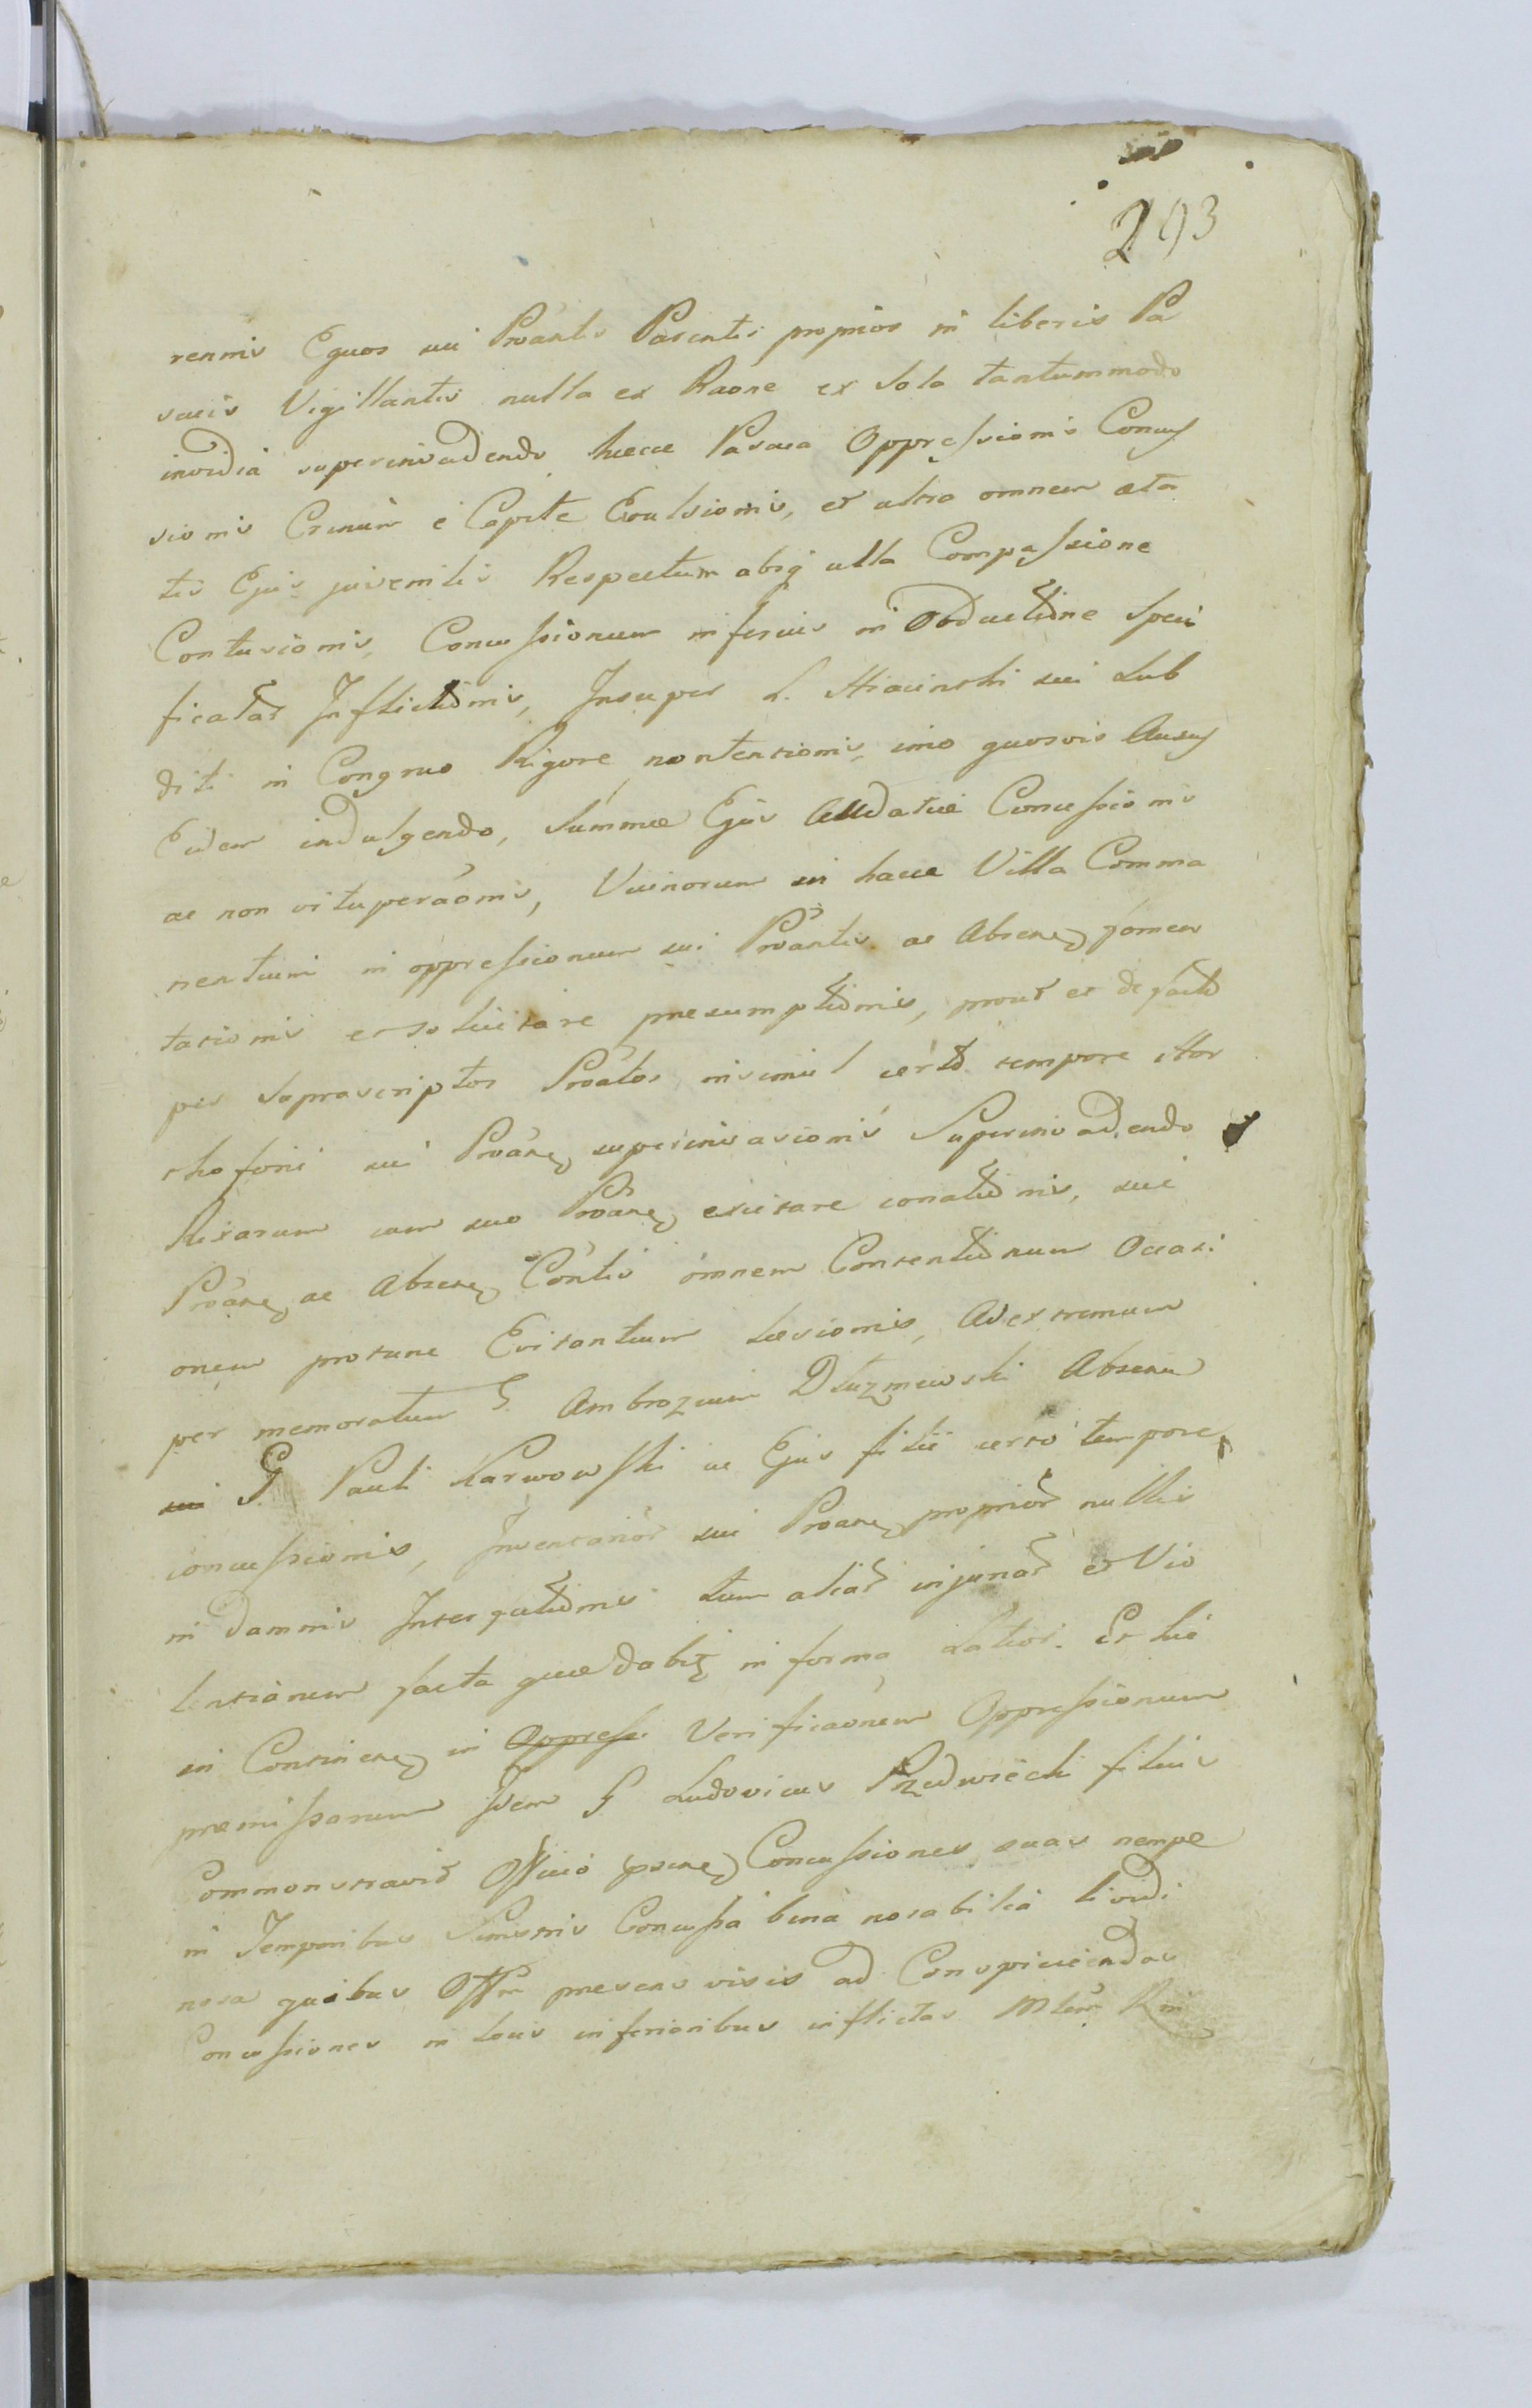 293
rennis Equos sui Proantis Parentis proprios in liberis Pa
scuis Vigillantis nulla ex Raone ex sola tantummodo
invidia superinvadendo haece Pascua Oppressionis Concus
sionis Crinium e Capite Evulsionis, et ultro omnem æta
tis Ejus juvenilis Respectum absq ulla Compassione
Contusionis, Concussionum inferius in Obductione Speci
ficatar Inflictionis, Insuper L. Hiacinthi sui Sub
diti in Congruo Rigore nontensionis, imo quosvis Ausus
Eidem indulgendo, Summæ Ejus Audatiæ Concussionis
ac non vituperaonis, Vicinorum in hacce Villa Comma
nentium in oppressionem sui Proantis ac Absene fomen
tationis et solicitare præsumptionis, prout et de facto
per suprascriptos Proatos insimul certo tempore
sui Proane superinvasionis Superinvadendo
Rixarum cum suo Proane excitare conationis, sui
Proane ac Absene Contis omnem Contentionum Occasi
onem protunc Evitantium Læsionis, Ad extremum
per memoratum G. Ambrozium Dłuzniewski Absenu
sui G. Pauli Karwowski ac Ejus filii certo tempore
concussionis, Inventarior sui Proane proprior nullis
in damnis Interceptionis Tum aliar injuriar et Vio
lentiarum facta quæ dabit in forma Latiori. Et hic
in Continene in Oppress. Verificaonem Oppressionum
præmissorum Idem G Ludovicus Przedwiecki filius
Commonstravit Officio psene Concussiones suas nempe
in Temporibus Sinistris Concussa bina notabilia lividi
nosa quibus Offm præsens visis ad Conspiciendas
Concussiones in Locis inferioribus inflictas Mlem